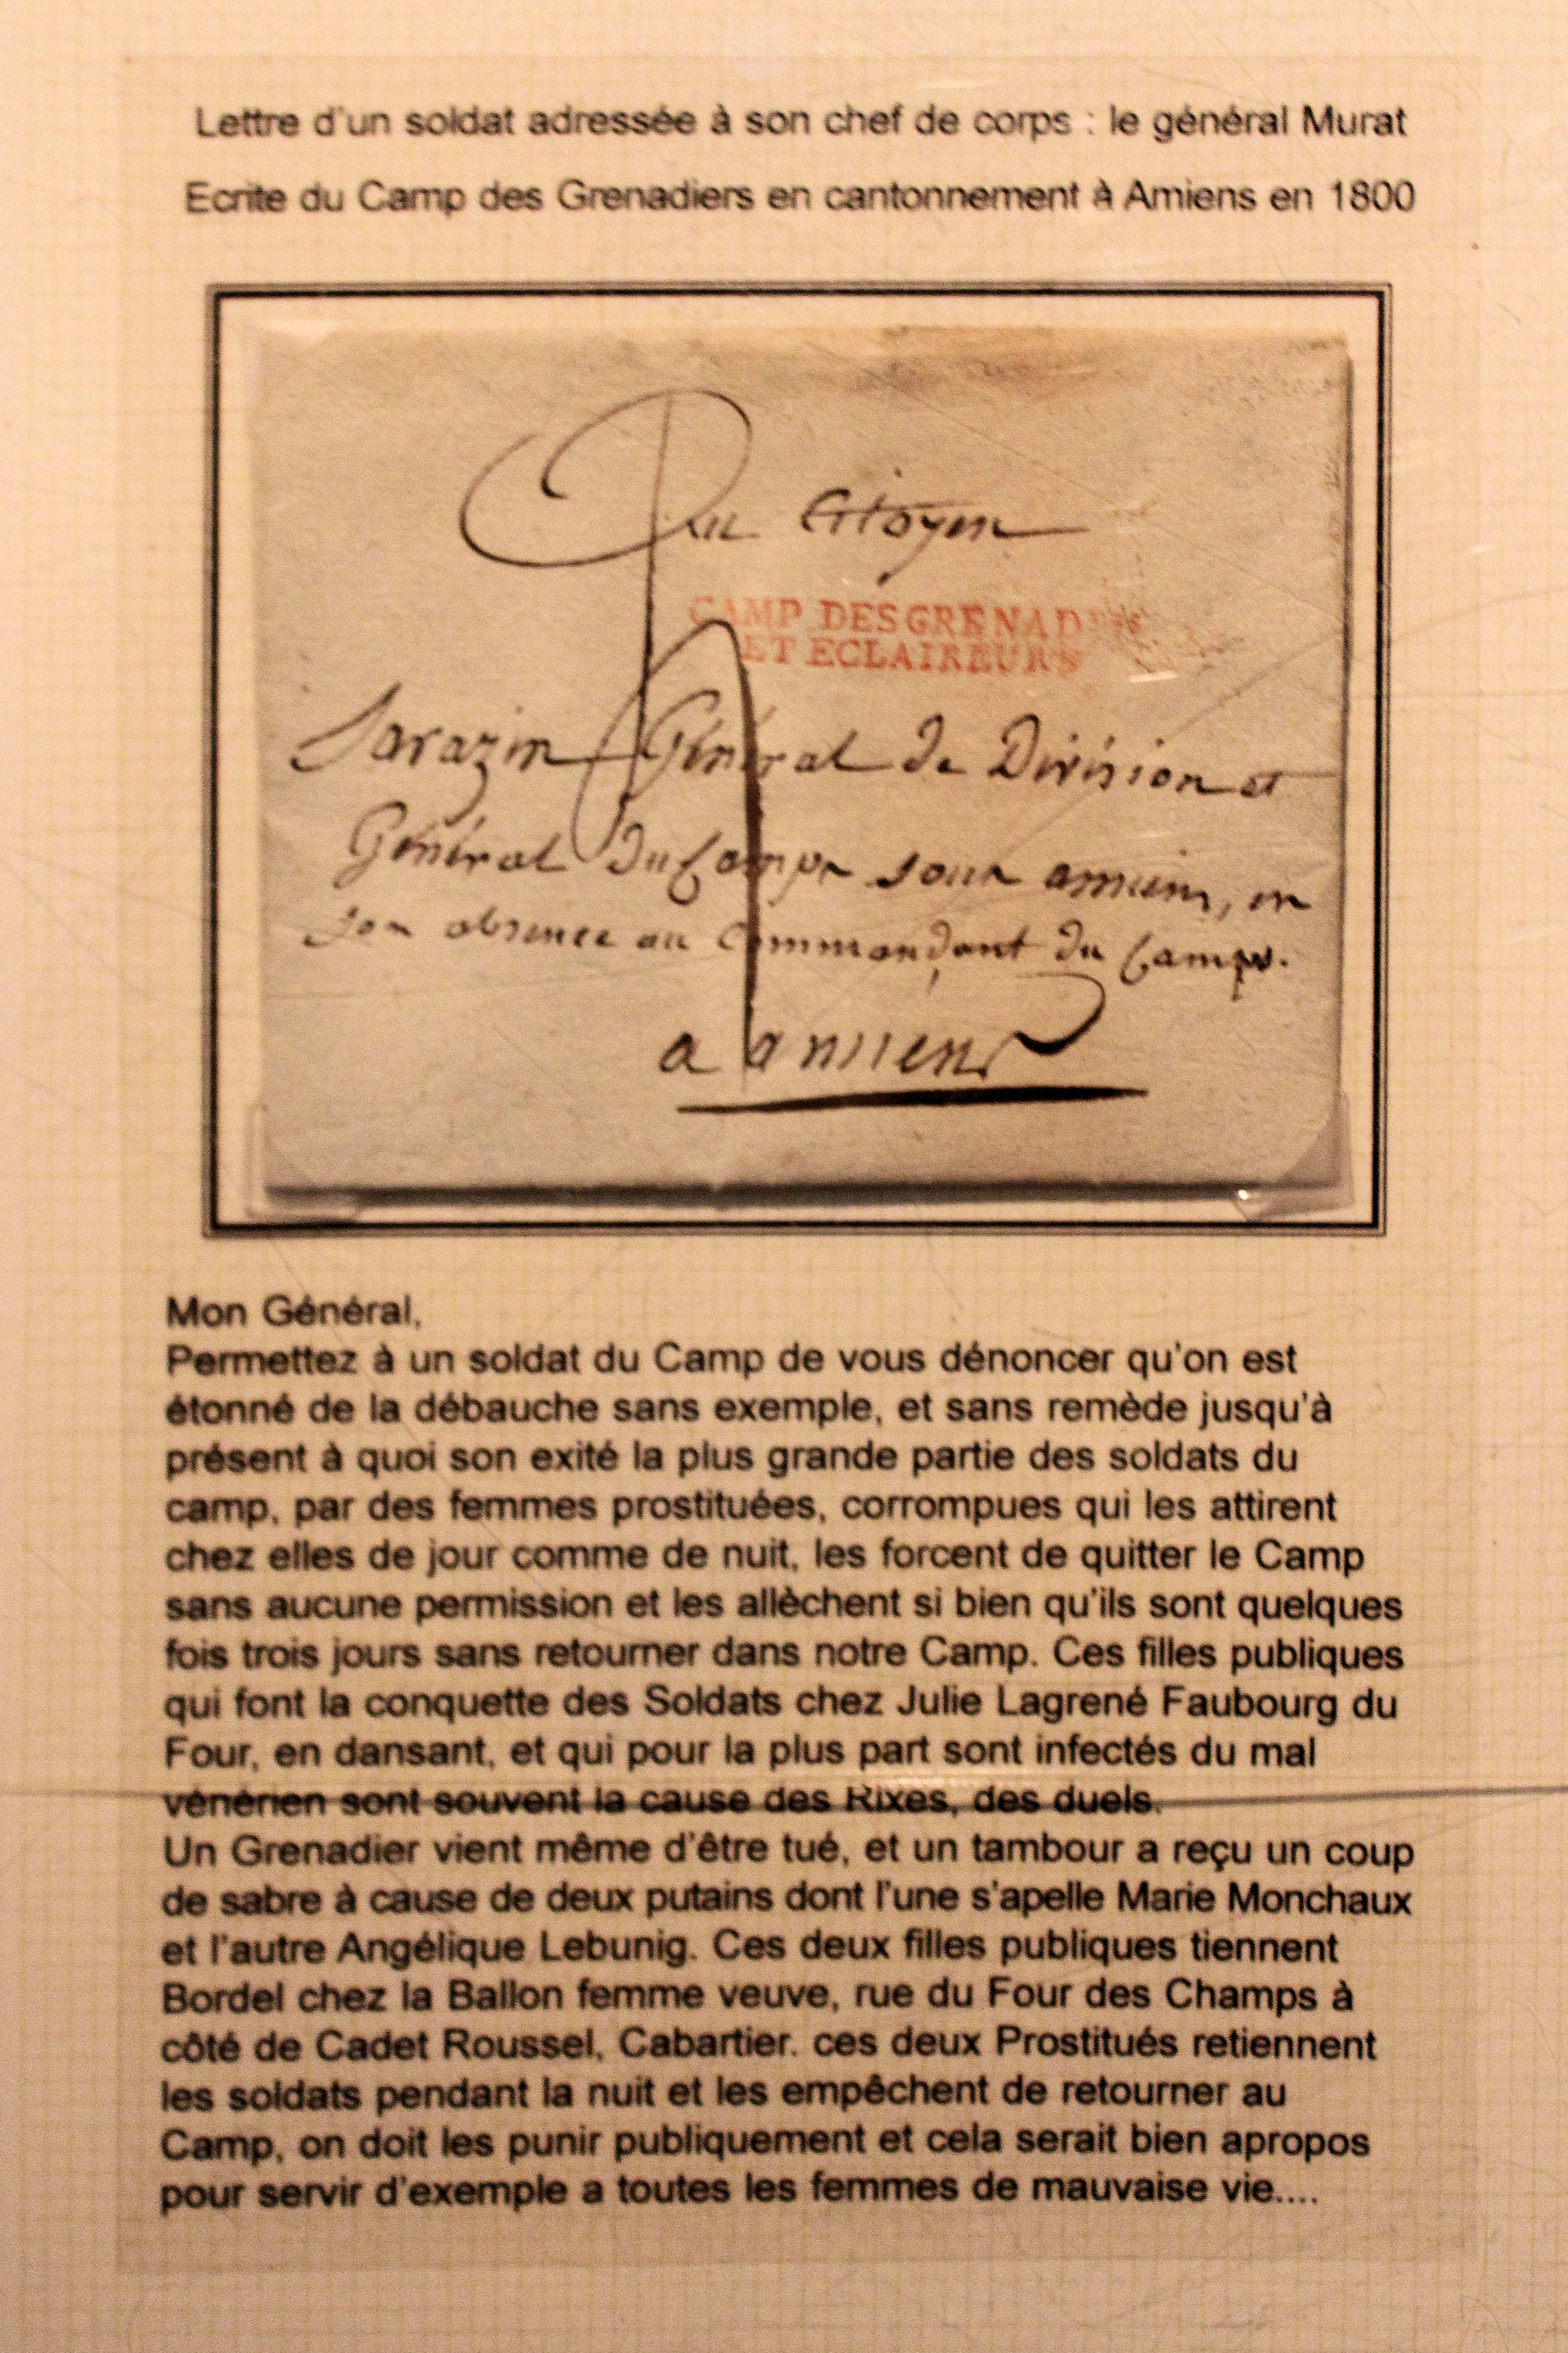 Lettre d'un soldat adressée à son chef de corps : le général Murat
Ecrite du Camp des Grenadiers en cantonnement à Amiens en 1800
Au Citoyen
CAMP DES GRENAD
ET ECLAIREURS
Sarazin Général de Division et
Général du Camp sous amiens, en
son absence au Commandant du Camp.
a amiens
Mon Général,
Permettez à un soldat du Camp de vous dénoncer qu'on est
étonné de la débauche sans exemple, et sans remède jusqu'à
présent à quoi son exité la plus grande partie des soldats du
camp, par des femmes prostituées, corrompues qui les attirent
chez elles de jour comme de nuit, les forcent de quitter le Camp
sans aucune permission et les allèchent si bien qu'ils sont quelques
fois trois jours sans retourner dans notre Camp. Ces filles publiques
qui font la conquette des Soldats chez Julie Lagrené Faubourg du
Four, en dansant, et qui pour la plus part sont infectés du mal
vénérien sont souvent la cause des Rixes, des duels.
Un Grenadier vient même d'être tué, et un tambour a reçu un coup
de sabre à cause de deux putains dont l'une s'apelle Marie Monchaux
et l'autre Angélique Lebunig. Ces deux filles publiques tiennent
Bordel chez la Ballon femme veuve, rue du Four des Champs à
côté de Cadet Roussel, Cabartier. ces deux Prostitués retiennent
les soldats pendant la nuit et les empêchent de retourner au
Camp, on doit les punir publiquement et cela serait bien apropos
pour servir d'exemple a toutes les femmes de mauvaise vie....